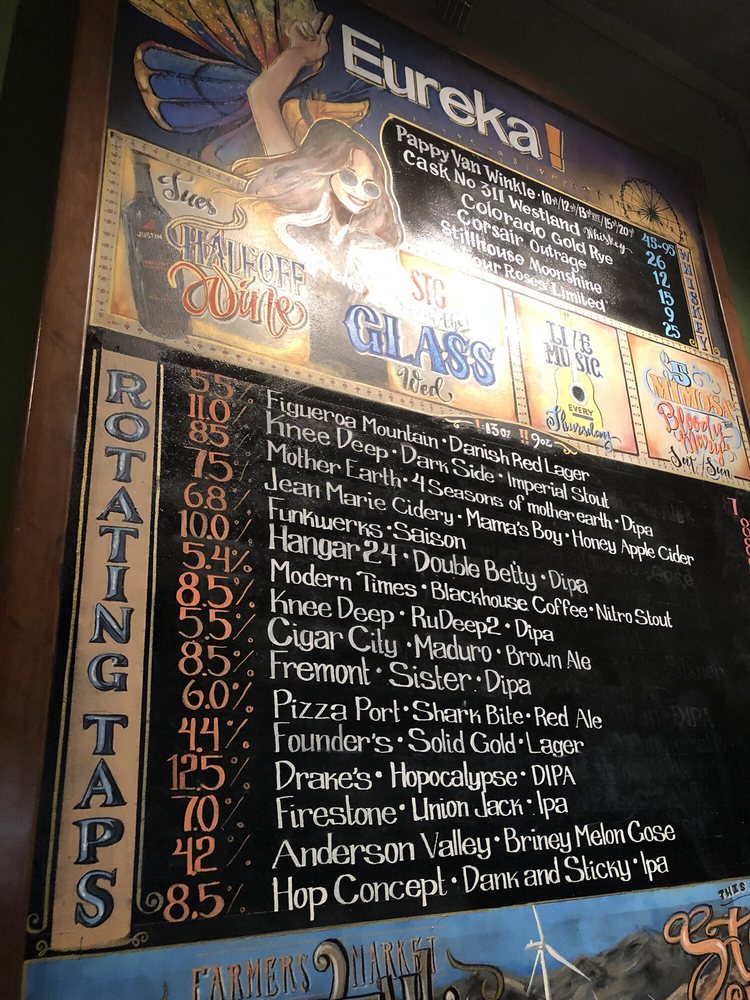 Eureka!
Pappy Van Winkle · 10yr/12yr/13yr rye/15yr/20yr 45-95
Cask No 311 Westland Whiskey 26
Colorado Gold Rye 12
Corsair Outrage 15
Stillhouse Moonshine 9
Four Roses Limited 25
WHISKEY
Tues
JUSTIN
HALF OFF
Wine
STG
the
GLASS
Wed
LIVE
MUSIC
EVERY
Thursday
$5
MIMOSA
Bloody
Mary
Sat/Sun
13oz 9oz
ROTATING TAPS
5.5% Figueroa Mountain · Danish Red Lager
11.0% Knee Deep · Dark Side · Imperial Stout
8.5 Mother Earth · 4 Seasons of mother earth · Dipa
7.5% Jean Marie Cidery · Mama's Boy · Honey Apple Cider
6.8% Funkwerks · Saison
10.0% Hangar 24 · Double Betty · Dipa
5.4% Modern Times · Blackhouse Coffee · Nitro Stout
8.5% Knee Deep · RuDeep2 · Dipa
5.5% Cigar City · Maduro · Brown Ale
8.5% Fremont · Sister · Dipa
6.0% Pizza Port · Shark Bite · Red Ale
4.4% Founder's · Solid Gold · Lager
12.5% Drake's · Hopocalypse · DIPA
7.0% Firestone · Union Jack · Ipa
4.2% Anderson Valley · Briney Melon Gose
8.5% Hop Concept · Dank and Sticky · Ipa
FARMERS MARKET
THIS